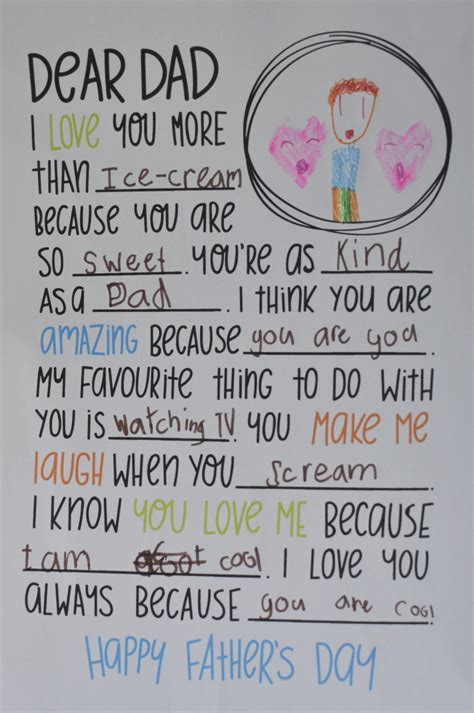 DEAR DAD
I LOVE YOU MORE
THAN Ice-cream
BECAUSE YOU ARE
SO Sweet. YOU'RE AS Kind
AS A Dad. I THINK YOU ARE
AMAZING BECAUSE you are you.
MY FAVOURITE THING TO DO WITH
YOU IS watching TV. YOU MAKE ME
LAUGH WHEN YOU Scream
I KNOW YOU LOVE ME BECAUSE
I am cool. I LOVE YOU
ALWAYS BECAUSE you are cool
HAPPY FATHER'S DAY